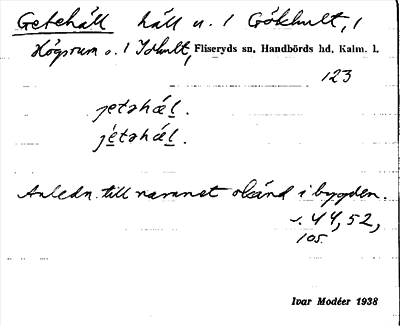 Getehäll häll n. l Gökhult, l
Högsrum o. l Idhult, Fliseryds sn, Handbörds hd, Kalm. l.
123
jetəhæl.
jétəhæl.
Anledn. till namnet okänd i bygden.
s. 44, 52,
105.
Ivar Modéer 1938